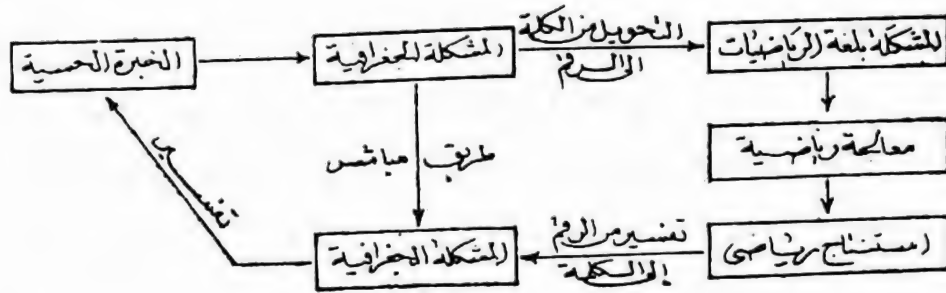 الخبرة الحسية
المشكلة الجغرافية
التحويل من الكلمة
الى الرقم
المشكلة بلغة الرياضيات
معالجة رياضية
استنتاج رياضى
تفسير من الرقم
إلى الكلمة
المشكلة الجغرافية
طريق مباشر
تفسير